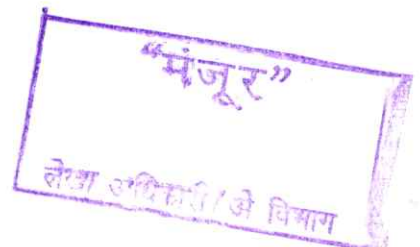 “मंजूर”
लेखा अधिकारी/ अे विभाग